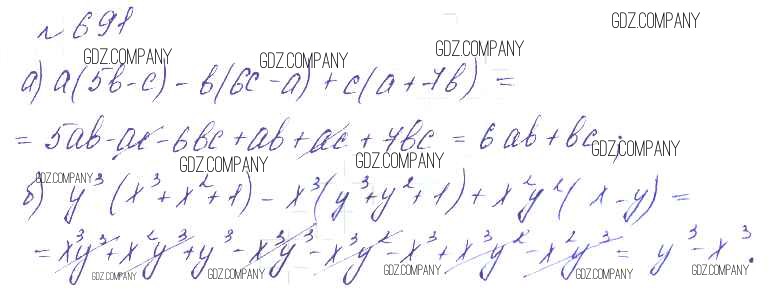 № 691
GDZ.COMPANY
GDZ.COMPANY GDZ.COMPANY GDZ.COMPANY
а) a(5b-c) - b(6c-a) + c(a+7b) =
= 5ab - ac - 6bc + ab + ac + 7bc = 6ab + bc;
GDZ.COMPANY GDZ.COMPANY GDZ.COMPANY GDZ.COMPANY
б) y³(x³+x²+1) - x³(y³+y²+1) + x²y²(x-y) =
= x³y³ + x²y³ + y³ - x³y³ - x³y² - x³ + x³y² - x²y³ = y³ - x³.
GDZ.COMPANY GDZ.COMPANY GDZ.COMPANY GDZ.COMPANY GDZ.COMPANY